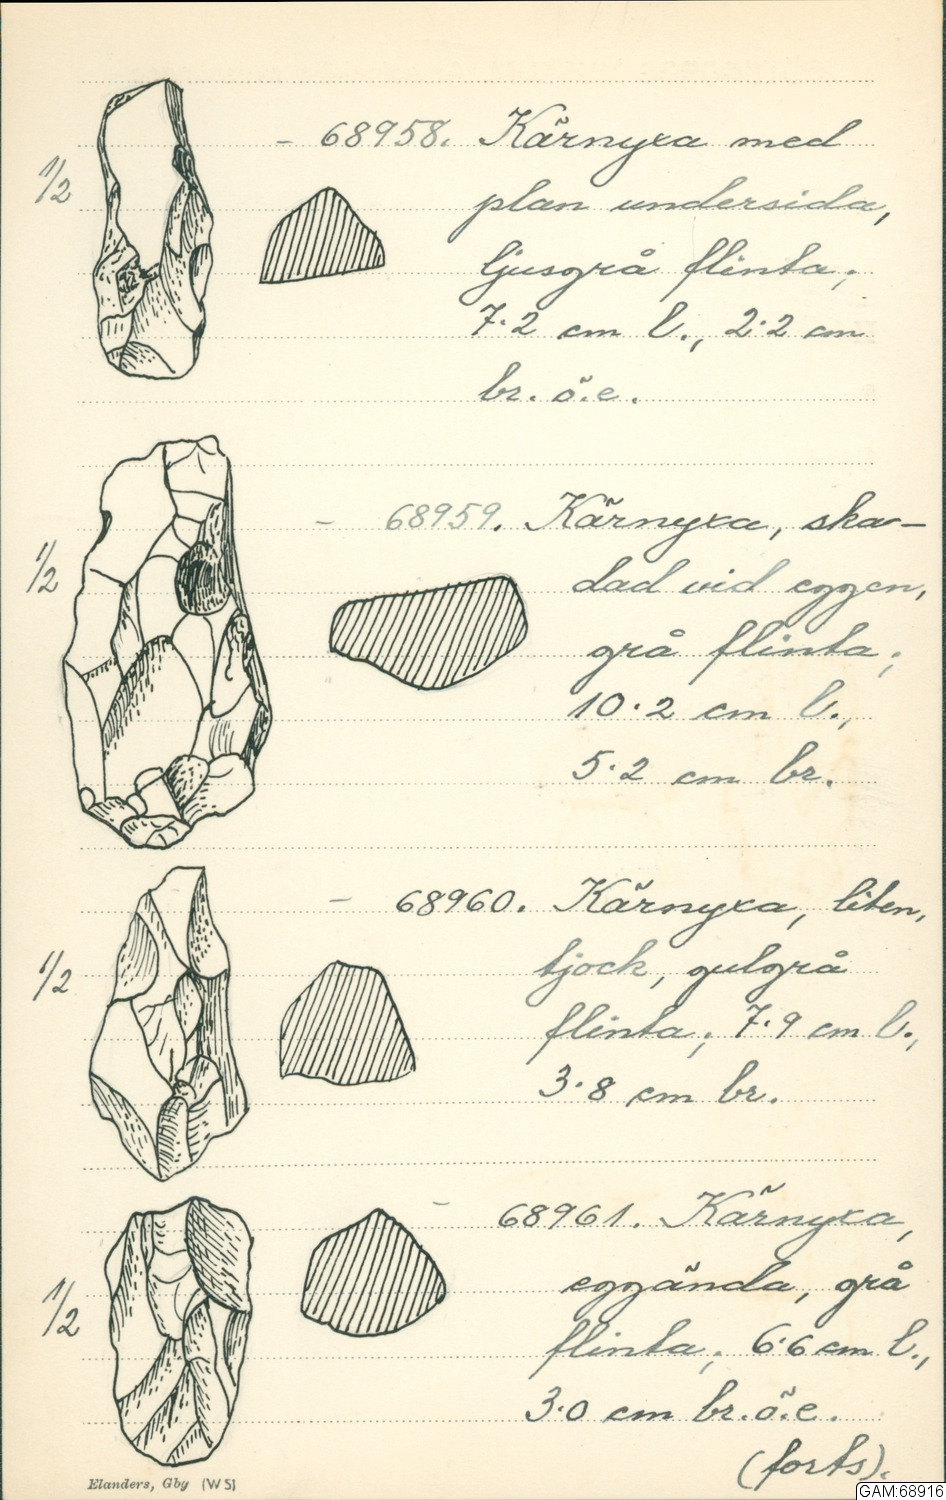 1/2
- 68958. Kärnyxa med
plan undersida,
ljusgrå flinta;
7.2 cm l., 2.2 cm
br. ö.e.
1/2
- 68959. Kärnyxa, ska-
dad vid eggen,
grå flinta;
10.2 cm l.,
5.2 cm br.
1/2
- 68960. Kärnyxa, liten,
tjock, gulgrå
flinta; 7.9 cm l.,
3.8 cm br.
1/2
- 68961. Kärnyxa,
eggända, grå
flinta; 6.6 cm l.,
3.0 cm br. ö.e.
(forts).
Elanders, Gby (WS)
GAM:68916